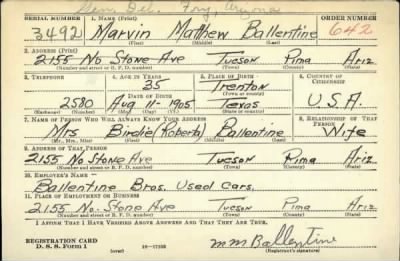 SERIAL NUMBER 1. NAME (Print) ORDER NUMBER
3492 Marvin Matthew Ballentine 642
(First) (Middle) (Last)
2. ADDRESS (Print)
2155 No Stone Ave Tucson Pima Ariz
(Number and street or R. F. D. number) (Town) (County) (State)
3. TELEPHONE 4. AGE IN YEARS 5. PLACE OF BIRTH 6. COUNTRY OF CITIZENSHIP
35 Trenton
DATE OF BIRTH (Town or county)
2580 Aug 11-1905 Texas U.S.A.
(Exchange) (Number) (Mo.) (Day) (Yr.) (State or country)
7. NAME OF PERSON WHO WILL ALWAYS KNOW YOUR ADDRESS 8. RELATIONSHIP OF THAT PERSON
Mrs Birdie (Roberta) Ballentine Wife
(Mr., Mrs., Miss) (First) (Middle) (Last)
9. ADDRESS OF THAT PERSON
2155 No Stone Ave Tucson Pima Ariz.
(Number and street or R. F. D. number) (Town) (County) (State)
10. EMPLOYER'S NAME
Ballentine Bros. Used Cars.
11. PLACE OF EMPLOYMENT OR BUSINESS
2155 No. Stone Ave Tucson Pima Ariz
(Number and street or R. F. D. number) (Town) (County) (State)
I AFFIRM THAT I HAVE VERIFIED ABOVE ANSWERS AND THAT THEY ARE TRUE.
REGISTRATION CARD
D. S. S. Form 1 (over) 16—17105 M M Ballentine
(Registrant's signature)